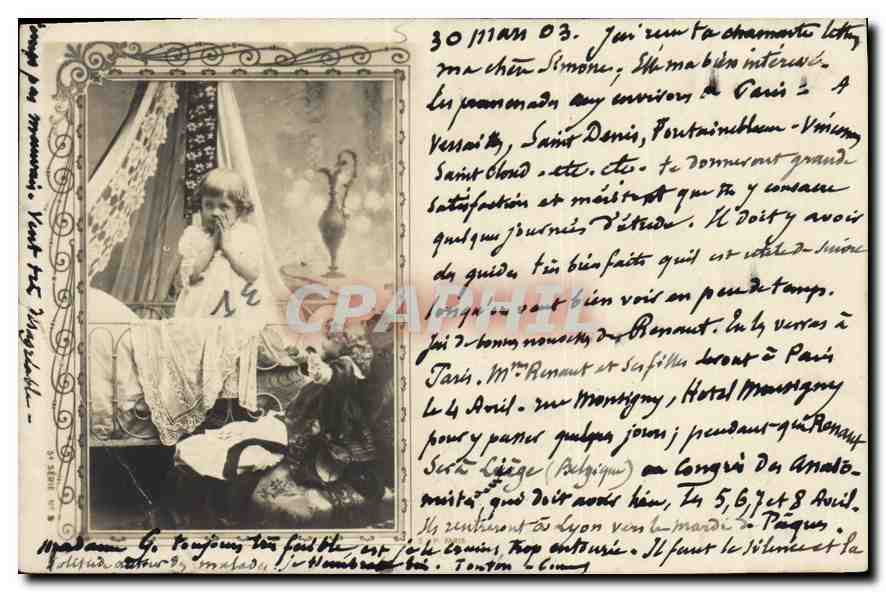 30 Mars 03. J'ai reçu ta charmante lettre,
ma chère Simone, Elle m'a bien intéressé.
Les promenades aux environs de Paris - A
Versailles, Saint Denis, Fontainebleau - Vincennes
Saint Cloud - etc. etc. - te donneront grande
satisfaction et méritent que tu y consacres
quelques journées d'étude. Il doit y avoir
des guides très bien faits qu'il est utile de suivre
lorsqu'on veut bien voir en peu de temps.
J'ai de bonnes nouvelles de Renaut. Tu les verras à
Paris. Mme Renaut et ses filles seront à Paris
le 4 Avril - rue Monsigny, Hotel Monsigny
pour y passer quelques jours; pendant que Renaut
sera à Liège (Belgique) au Congrès des Anato-
mistes qui doit avoir lieu, les 5, 6, 7 et 8 Avril.
Ils rentreront à Lyon vers le mardi de Pâques.
Madame G. toujours très faible, est je le crains, trop entourée. Il faut le silence et la
solitude autour des malades. Je t'embrasse
Tonton
temps pas mauvais. Vent très désagréable -
5e SÉRIE No 3
PARIS
CPAPHIL